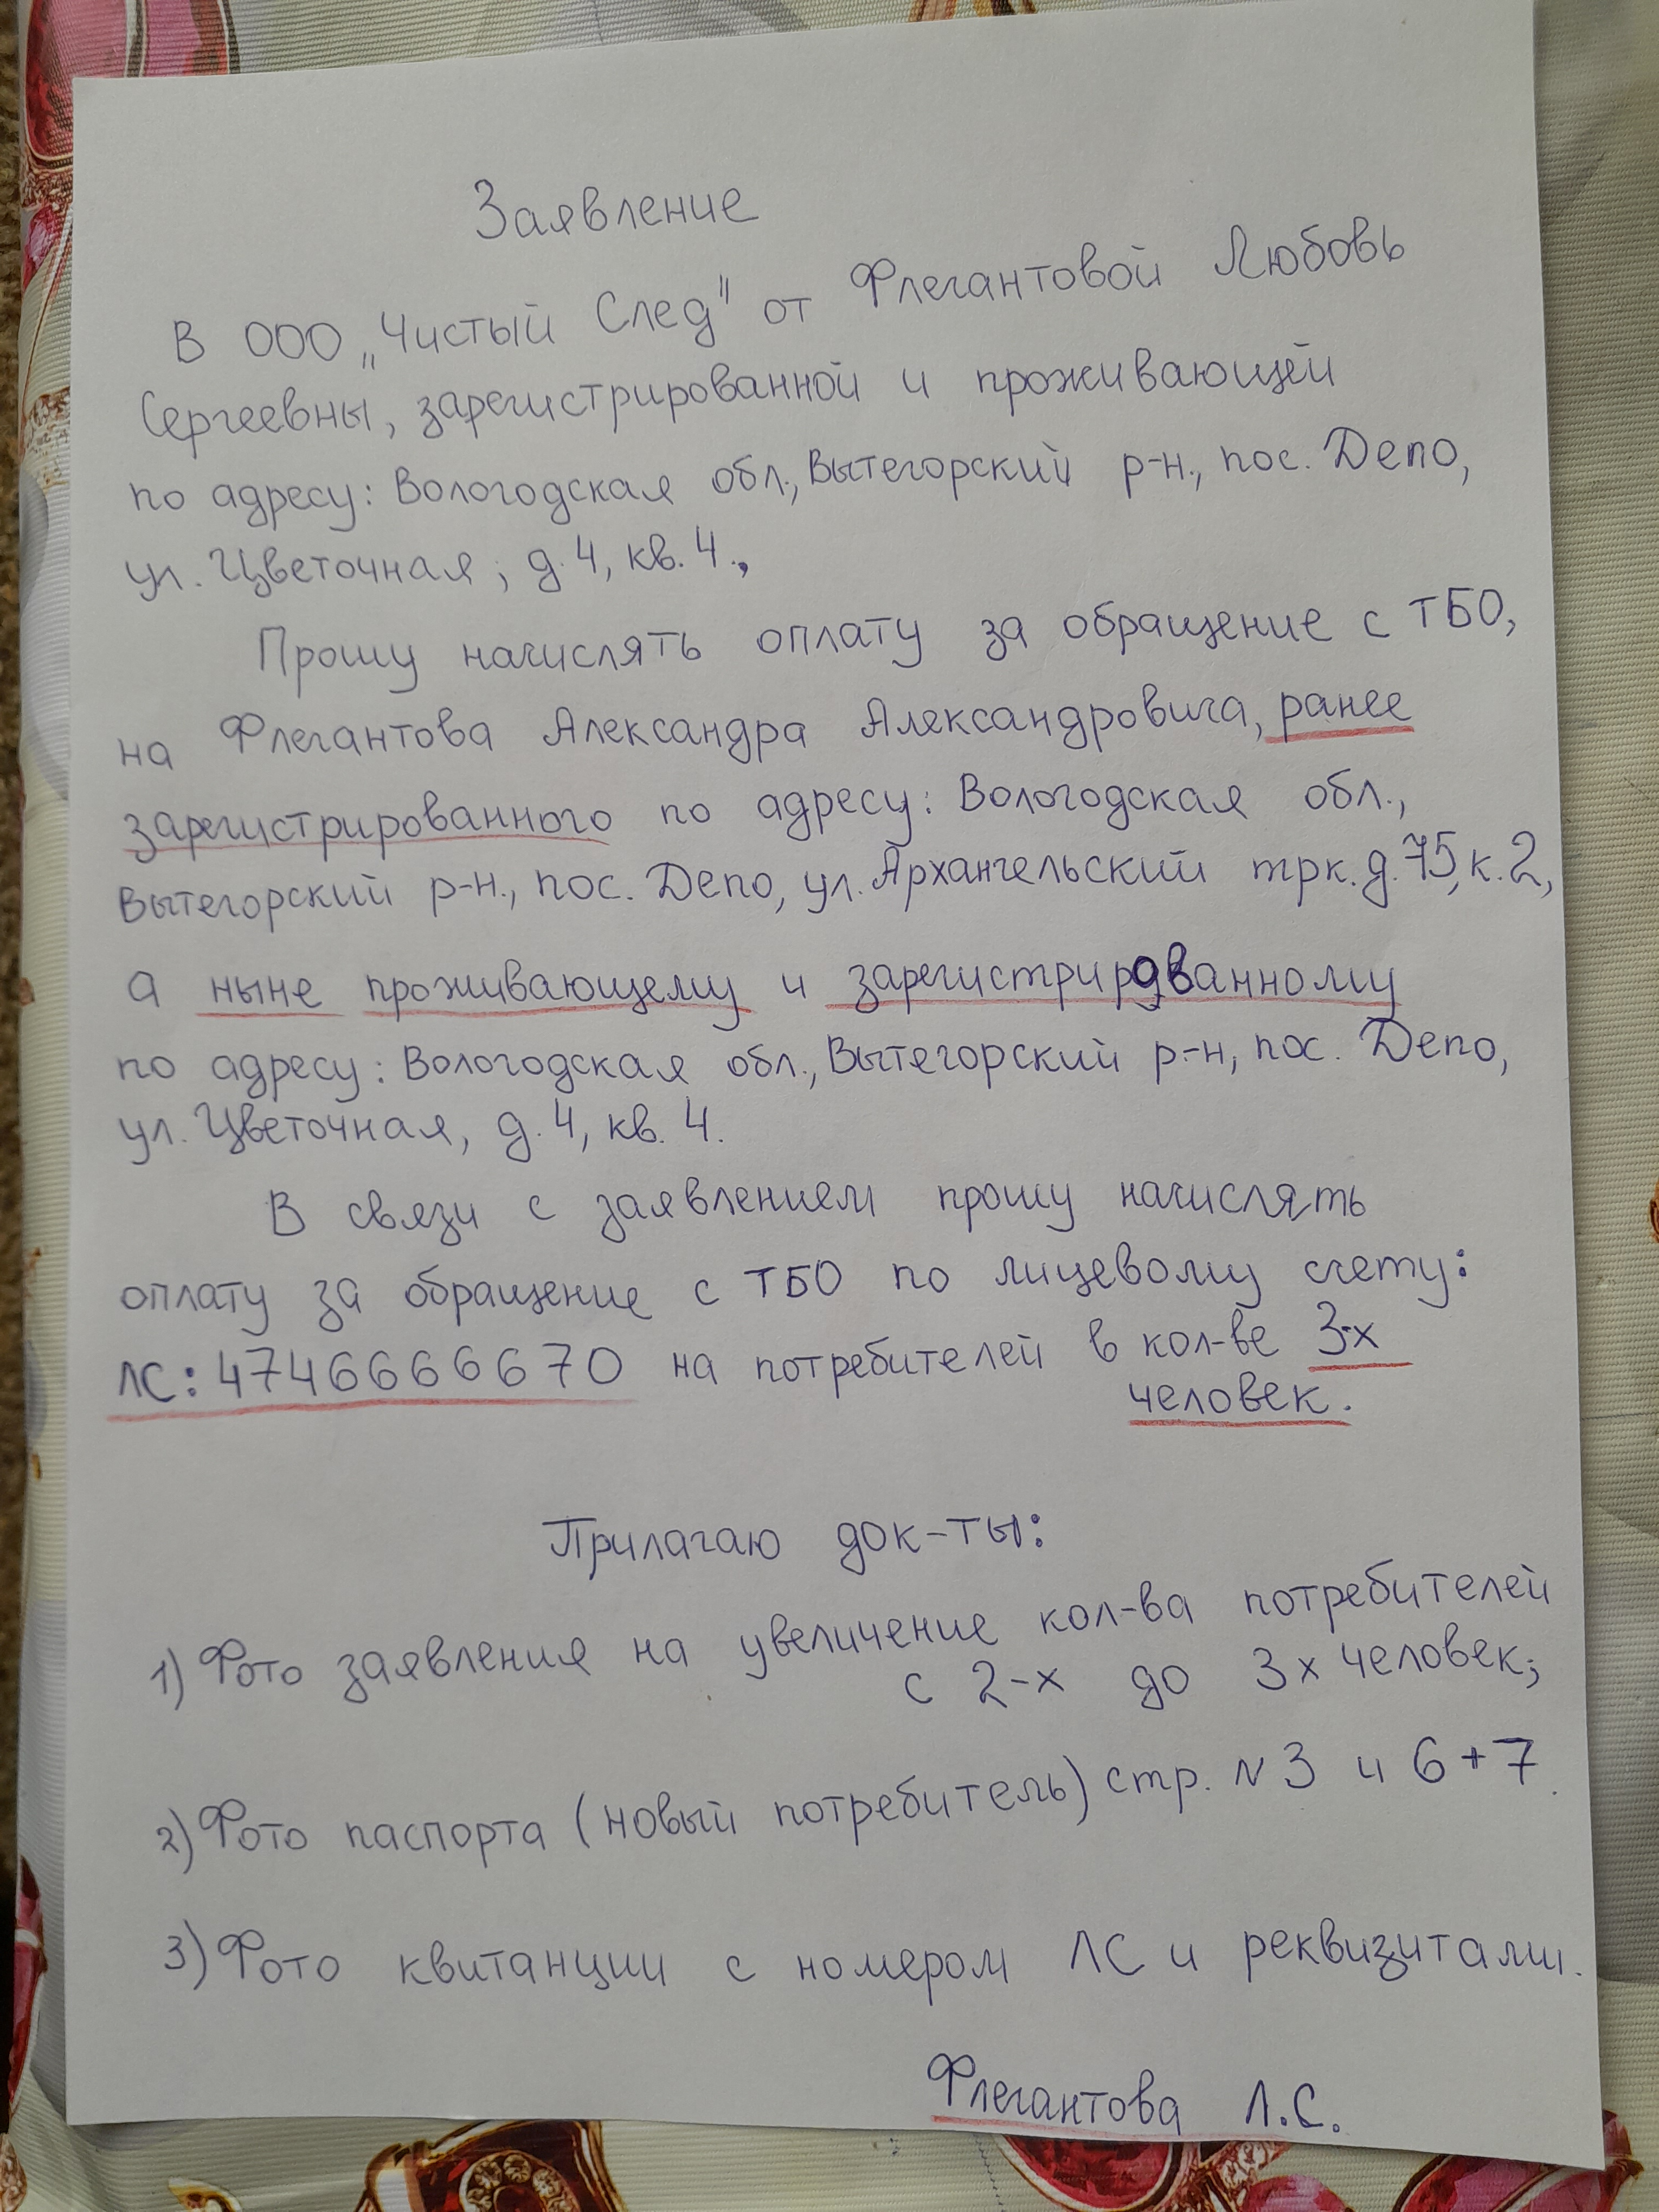 Заявление
В ООО „Чистый След" от Флегантовой Любовь
Сергеевны, зарегистрированной и проживающей
по адресу: Вологодская обл., Вытегорский р-н., пос. Депо,
ул. Цветочная, д. 4, кв. 4.,
Прошу начислять оплату за обращение с ТБО,
на Флегантова Александра Александровича, ранее
зарегистрированного по адресу: Вологодская обл.,
Вытегорский р-н., пос. Депо, ул. Архангельский трк. д. 75, к. 2,
а ныне проживающему и зарегистрированному
по адресу: Вологодская обл., Вытегорский р.-н, пос. Депо,
ул. Цветочная, д. 4, кв. 4.
В связи с заявлением прошу начислять
оплату за обращение с ТБО по лицевому счету:
ЛС: 4746666670 на потребителей в кол-ве 3-х
человек.
Прилагаю док-ты:
1) Фото заявления на увеличение кол-ва потребителей
с 2-х до 3х человек;
2) Фото паспорта (новый потребитель) стр. N 3 и 6+7.
3) Фото квитанции с номером ЛС и реквизитами.
Флегантова Л.С.